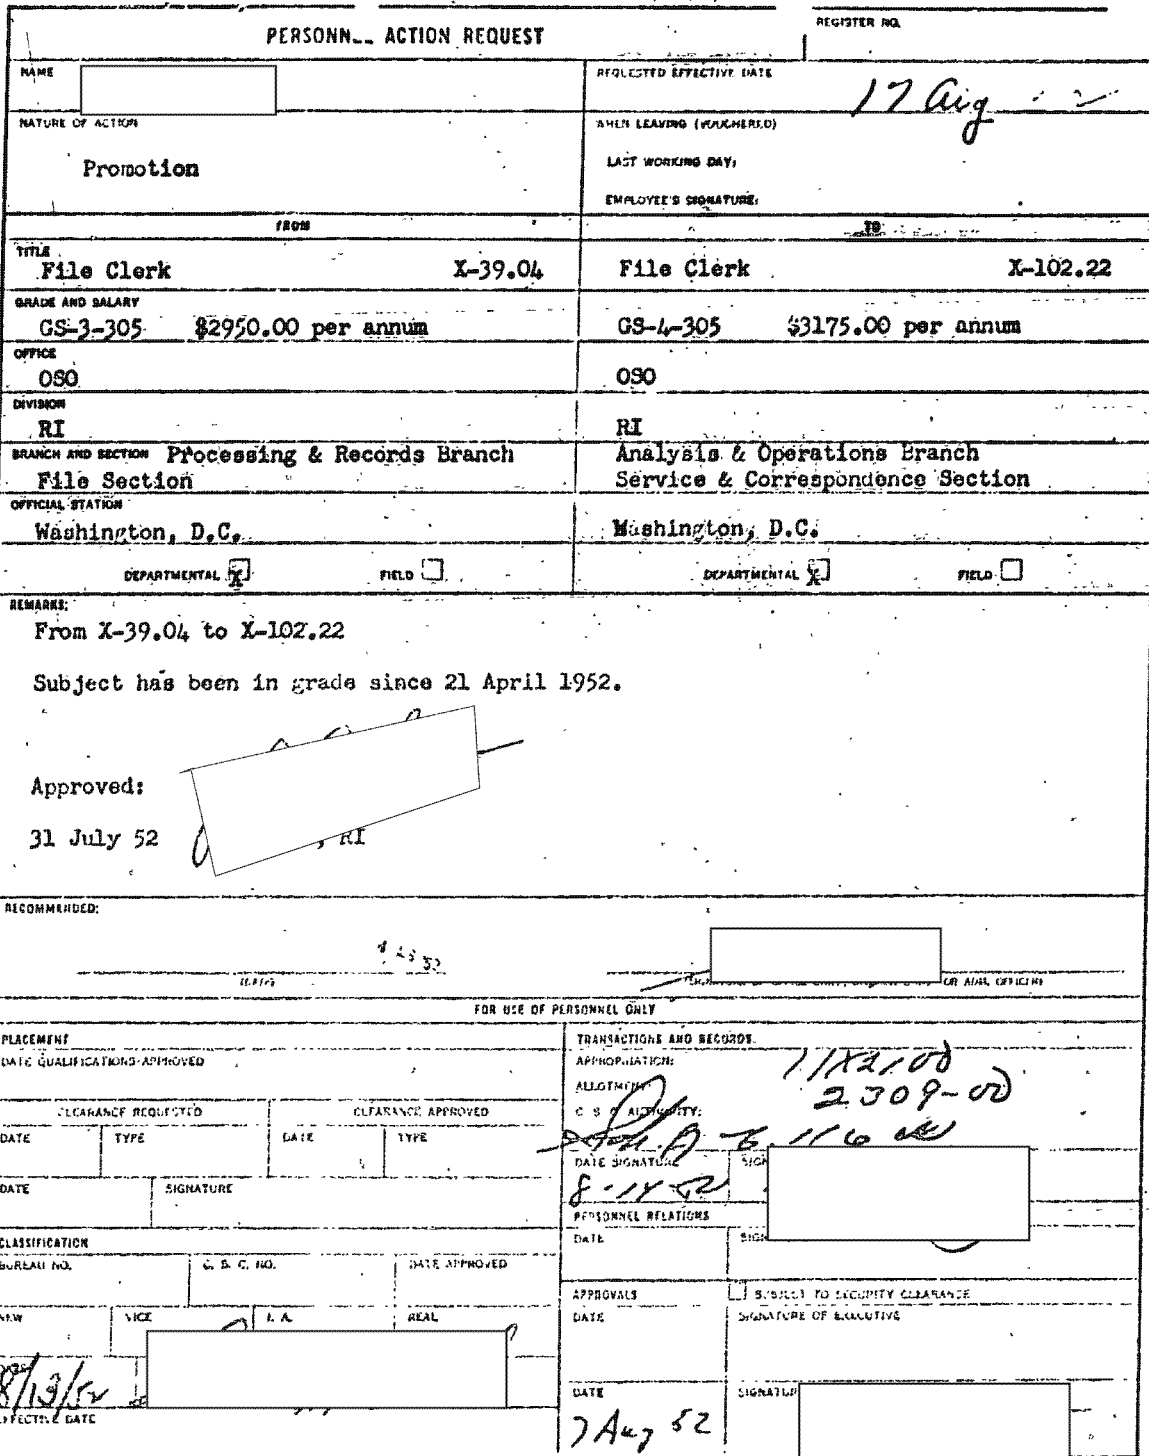 PERSONN ACTION REQUEST
REGISTER NO.
NAME
REQUESTED EFFECTIVE DATE
17 Aug
NATURE OF ACTION
WHEN LEAVING (VOUCHERED)
Promotion
LAST WORKING DAY:
EMPLOYEE'S SIGNATURE:
FROM
TO
TITLE
File Clerk X-39.04
File Clerk X-102.22
GRADE AND SALARY
GS-3-305 $2950.00 per annum
GS-4-305 $3175.00 per annum
OFFICE
OSO
OSO
DIVISION
RI
RI
BRANCH AND SECTION Processing & Records Branch
File Section
Analysis & Operations Branch
Service & Correspondence Section
OFFICIAL STATION
Washington, D.C.
Washington, D.C.
DEPARTMENTAL X FIELD
DEPARTMENTAL X FIELD
REMARKS:
From X-39.04 to X-102.22
Subject has been in grade since 21 April 1952.
Approved:
31 July 52 , RI
RECOMMENDED:
(DATE)
OR ADM. OFFICER)
FOR USE OF PERSONNEL ONLY
PLACEMENT
DATE QUALIFICATIONS APPROVED
CLEARANCE REQUESTED
CLEARANCE APPROVED
DATE TYPE
DATE TYPE
DATE SIGNATURE
CLASSIFICATION
BUREAU NO. C. S. C. NO. DATE APPROVED
NEW VICE I. A. REAL
8/13/52
EFFECTIVE DATE
TRANSACTIONS AND RECORDS
APPROPRIATION:
ALLOTMENT:
2309-00
C S C AUTHORITY:
DATE SIGNATURE
8-14-52
PERSONNEL RELATIONS
DATE
APPROVALS
SUBJECT TO SECURITY CLEARANCE
DATE SIGNATURE OF EXECUTIVE
DATE
7 Aug 52